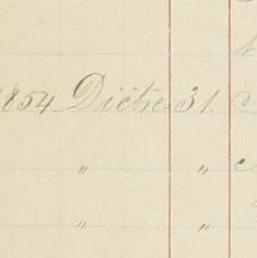 1854 Dictre 31.
" "
" "